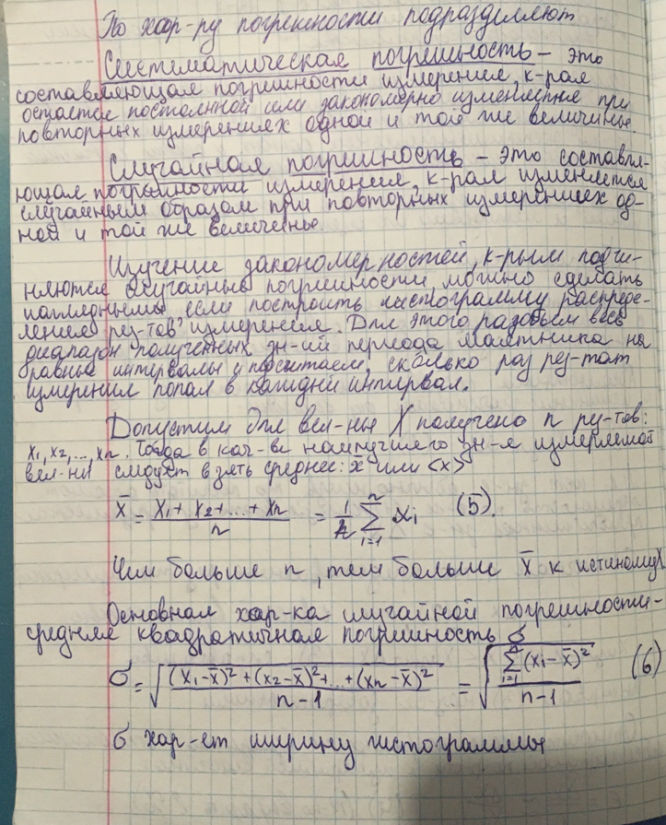 По хар-ру погрешности подразделяют
Систематическая погрешность – это
составляющая погрешности измерения, к-рая
остается постоянной или закономерно изменяется при
повторных измерениях одной и той же величины.
Случайная погрешность – это составля-
ющая погрешности измерения, к-рая изменяется
случайным образом при повторных измерениях од-
ной и той же величины.
Изучение закономерностей, к-рым подчи-
няются случайные погрешности, можно сделать
наглядным, если построить гистограмму распреде-
ления рез-тов измерения. Для этого разобьем весь
диапазон полученных зн-ий периода маятника на
равные интервалы и посчитаем, сколько раз рез-тат
измерения попал в каждый интервал.
Допустим для вел-ны X получено n рез-тов:
x₁, x₂, ..., xn. Тогда в кач-ве наилучшего зн-я измеряемой
вел-ны следует взять среднее: x̄ или <x>
x̄ = (x₁ + x₂ + ... + xn)/n = 1/n ∑ᵢ₌₁ⁿ xᵢ (5).
Чем больше n, тем больше x̄ к истиному X
Основная хар-ка случайной погрешности-
средняя квадратичная погрешность σ
σ = √(((x₁-x̄)² + (x₂-x̄)² + ... + (xn-x̄)²)/(n-1)) = √(∑ᵢ₌₁ⁿ (xᵢ-x̄)²/(n-1)) (6)
σ хар-ет ширину гистограммы